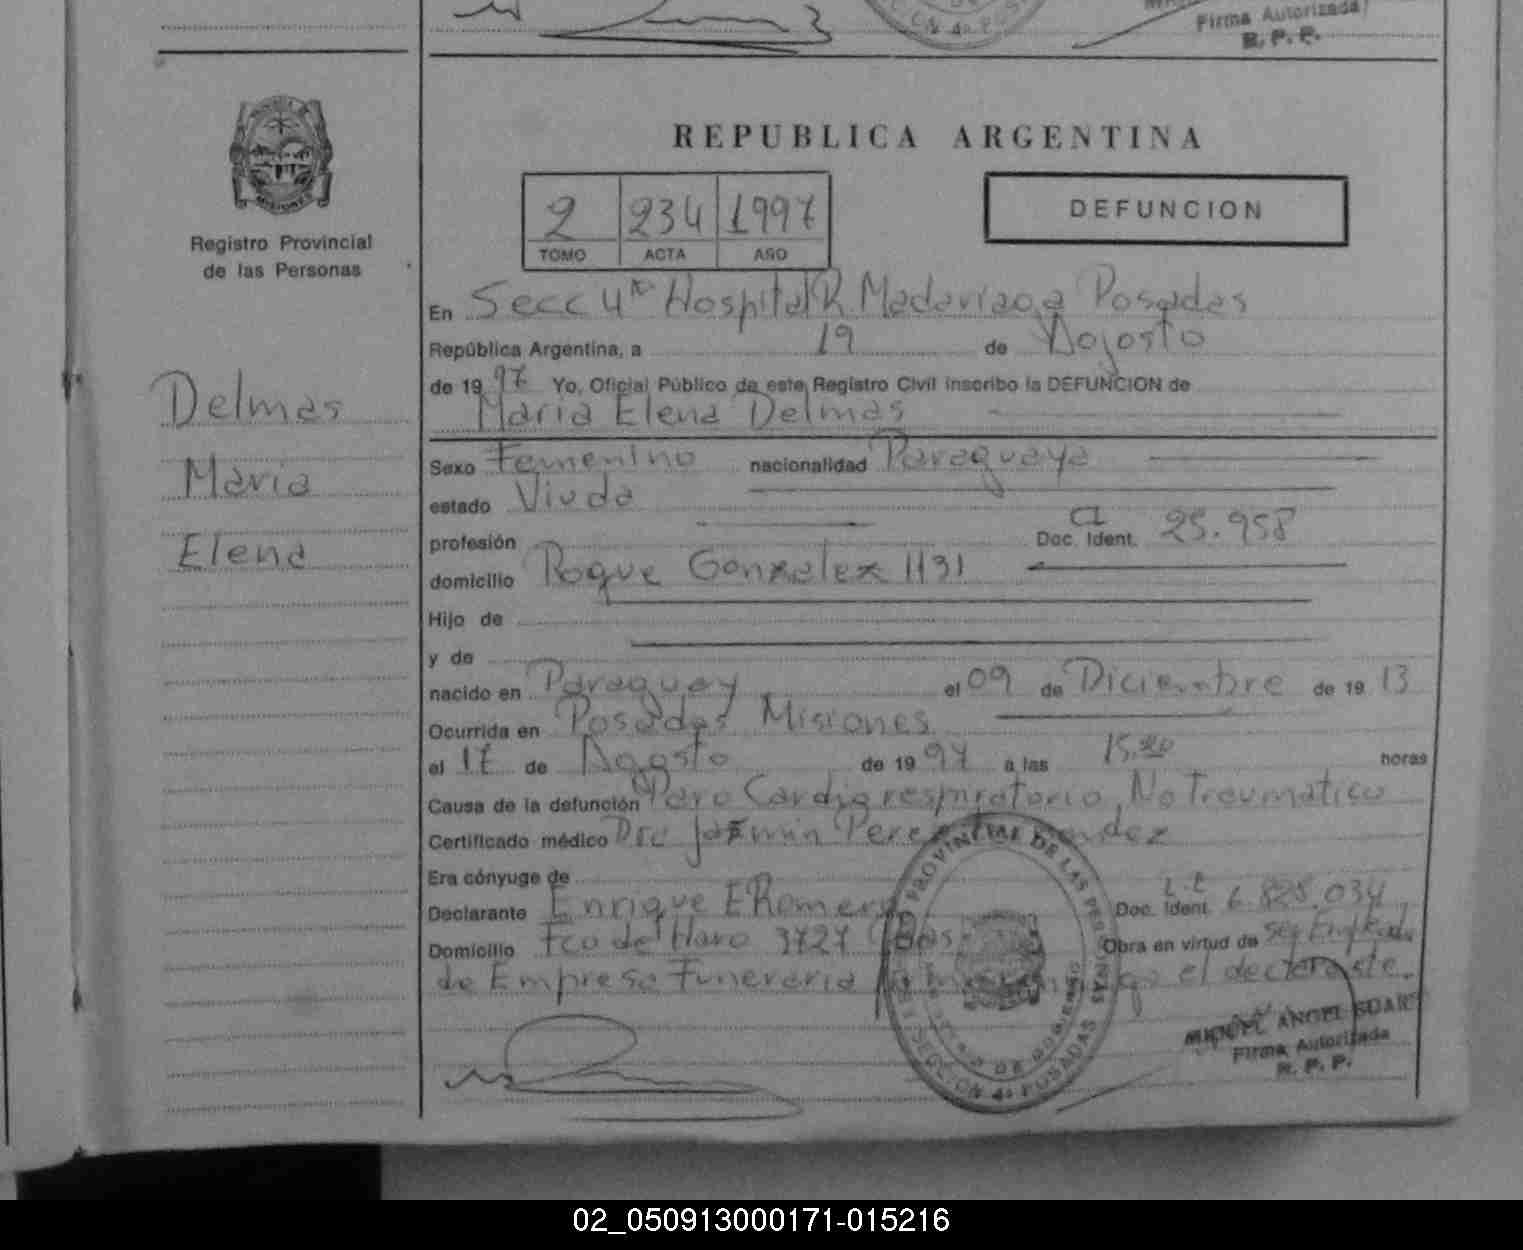 Firma Autorizada
R. P. P.
REPUBLICA ARGENTINA
2 234 1997
TOMO ACTA AÑO
DEFUNCION
Registro Provincial
de las Personas
Delmas
Maria
Elena
En Secc 4ta Hospital R. Madariaga Posadas
República Argentina, a 19 de Agosto
de 1997 Yo, Oficial Público de este Registro Civil inscribo la DEFUNCION de
Maria Elena Delmas
Sexo Femenino nacionalidad Paraguaya
estado Viuda
profesión Doc. Ident. CI 25.958
domicilio Roque Gonzalez 1131
Hijo de
y de
nacido en Paraguay el 09 de Diciembre de 1913
Ocurrida en Posadas Misiones
el 17 de Agosto de 1997 a las 15.20 horas
Causa de la defunción Paro Cardiorespiratorio, No Traumatico
Certificado médico Dra Jazmin Perez
Era cónyuge de
Declarante Enrique E Romero Doc. Ident. L.E 6.825.034
Domicilio Fco de Haro 3727 Obra en virtud de ser Empleado
de Empresa Funeraria el declarante.
PROVINCIAL DE LAS PERSONAS
SECCION 4a POSADAS
MIGUEL ANGEL
Firma Autorizada
R. P. P.
02_050913000171-015216